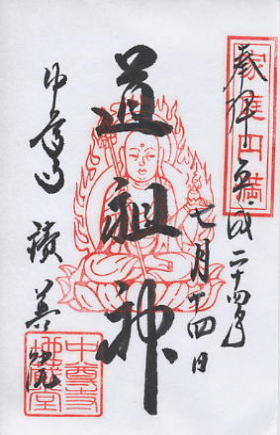 家庭円満
奉拝 平成二十四年
七月十四日
道祖神
中尊寺 積善院
中尊寺
地蔵堂